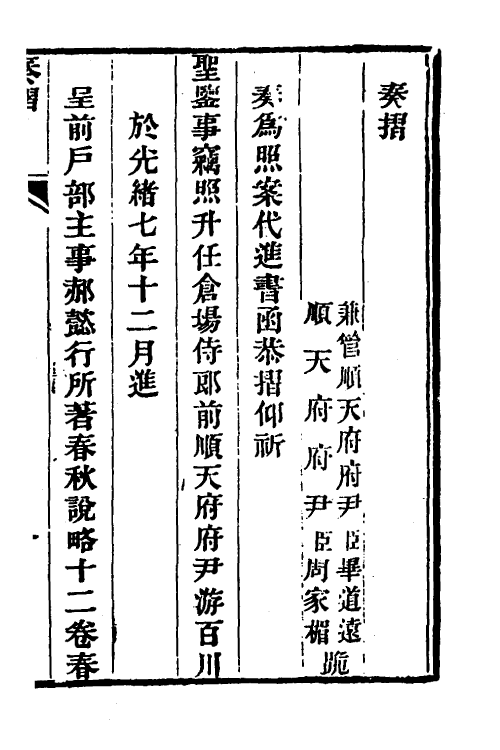 奏摺
兼管順天府府尹臣畢道遠
順天府府尹臣周家楣
跪
奏爲照案代進書函恭摺仰祈
聖鑒事竊照升任倉場侍郎前順天府府尹游百川
於光緒七年十二月進
呈前戶部主事郝懿行所著春秋說略十二卷春
奏摺